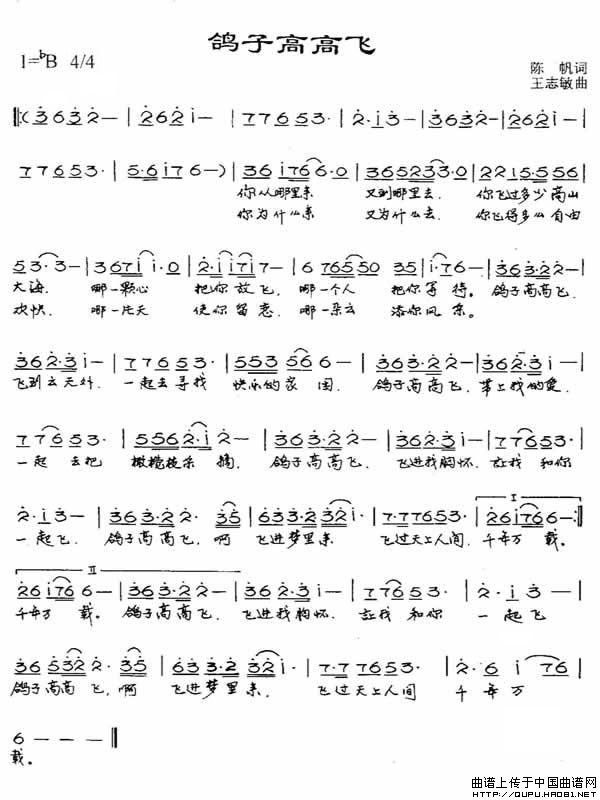 鸽子高高飞
1=bB 4/4
陈 帆词
王志敏曲
‖: 3 6 3 2 — | 2 6 2 i — | 7 7 6 5 3· | 2· i 3 — | 3 6 3 2 — | 2 6 2 i — |
7 7 6 5 3· | 5· 6 i 7 6 — ) | 3 6 i 7 6 6· 0 | 3 6 5 2 3 3· 0 | 2 2 1 5· 5 5 6 |
你从哪里来 又到哪里去. 你飞过多少高山
你为什么来 又为什么去. 你飞得多么自由
5 3· 3 — | 3 6 7 i i· 0 | 2· i i 7 i 7 — | 6 7 6 5 5 0 3 5 | i· 7 6 — | 3 6 3· 2 2 — |
大海. 哪一颗心 把你放飞, 哪一个人 把你等待. 鸽子高高飞,
欢快. 哪一片天 使你留恋. 哪一朵云 添你风采.
3 6 2· 3 i — | 7 7 6 5 3· | 5 5 3 5 6 6 — | 3 6 3· 2 2 — | 3 6 2· 3 i — |
飞到云天外. 一起去寻找 快乐的家园. 鸽子高高飞, 带上我的爱,
7 7 6 5 3· | 5 5 6 2· i 2 — | 3 6 3· 2 2 — | 3 6 2· 3 i — | 7 7 6 5 3· |
一起 去把 橄榄枝采摘. 鸽子高高飞, 飞进我胸怀. 让我 和你
2· i 3 — | 3 6 3· 2 2· 3 5 | 6 3 3· 2 3 2 i· | 7· 7 7 6 5 3· | 2 6 i 7 6 6 — :‖
I
一起飞, 鸽子高高飞, 啊 飞进梦里来, 飞过天上人间, 千年万 载。
II
2 6 i 7 6 6 — | 3 6 3· 2 2 — | 3 6 2· 3 i — | 7 7 6 5 3· | 2· i 3 — |
千年万 载。 鸽子高高飞, 飞进我胸怀. 让我 和你 一起飞
3 6 5 3 2 2· 3 5 | 6 3 3· 2 3 2 i· | 7· 7 7 6 5 3· | 2· 6 i 7 6 |
鸽子高高 飞, 啊 飞进梦里来, 飞过天上人间 千年万
6 — — — ‖
载。
曲谱上传于中国曲谱网
HTTP://QUPU.HAO81.NET